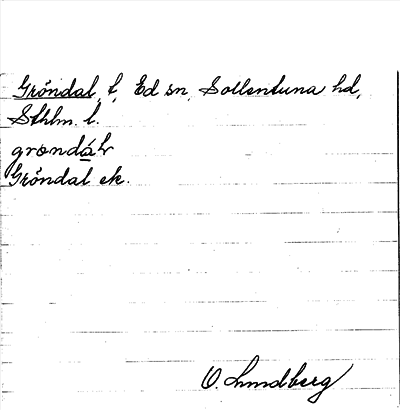 Gröndal, t, Ed sn, Sollentuna hd,
Sthlm. l.
grøndál
Gröndal ek.
O. Lundberg